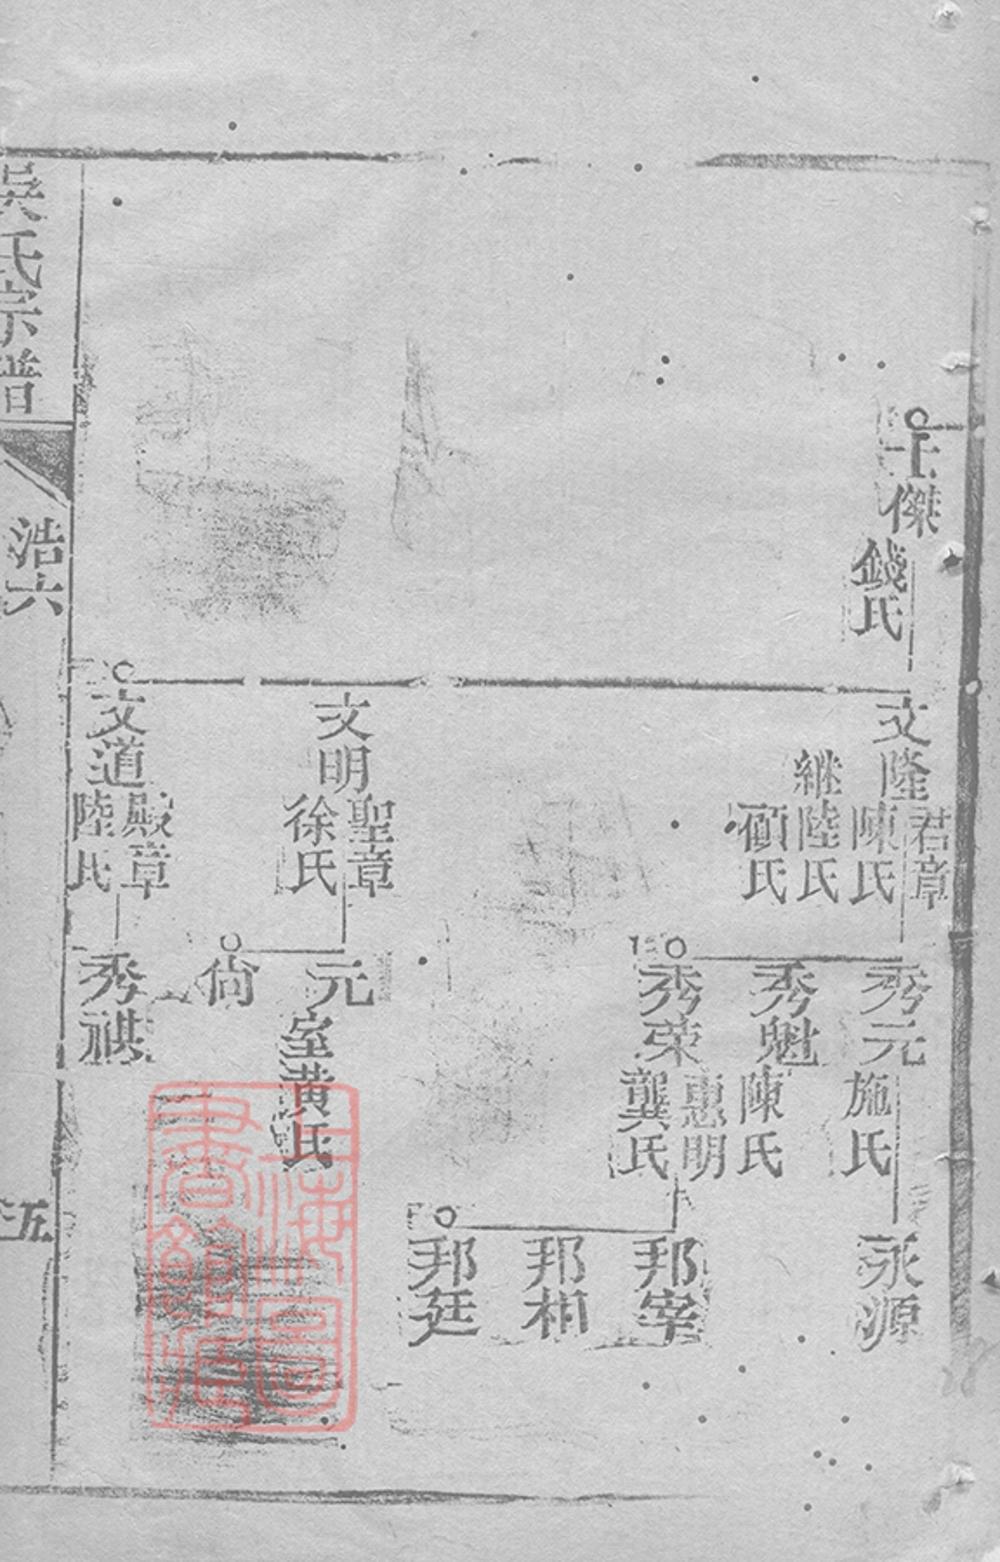 士傑
錢氏
文隆
君章
陳氏
繼陸氏
顧氏
文明
聖章
徐氏
文道
殿章
陸氏
秀元
施氏
秀魁
陳氏
秀荣
惠明
龔氏
元
室黄氏
尙
秀祺
永源
邦宰
邦相
邦廷
吳氏宗譜
浩六
五
上海圖
書館藏